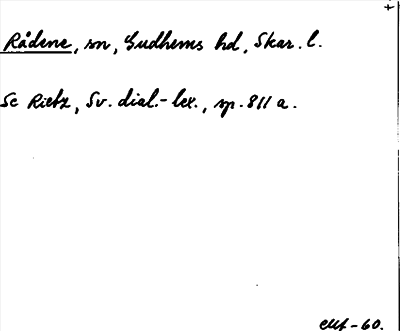 Rådene, sn, Gudhems hd, Skar. l.
Se Rietz, Sv. dial.-lex., sp. 811 a.
-60.